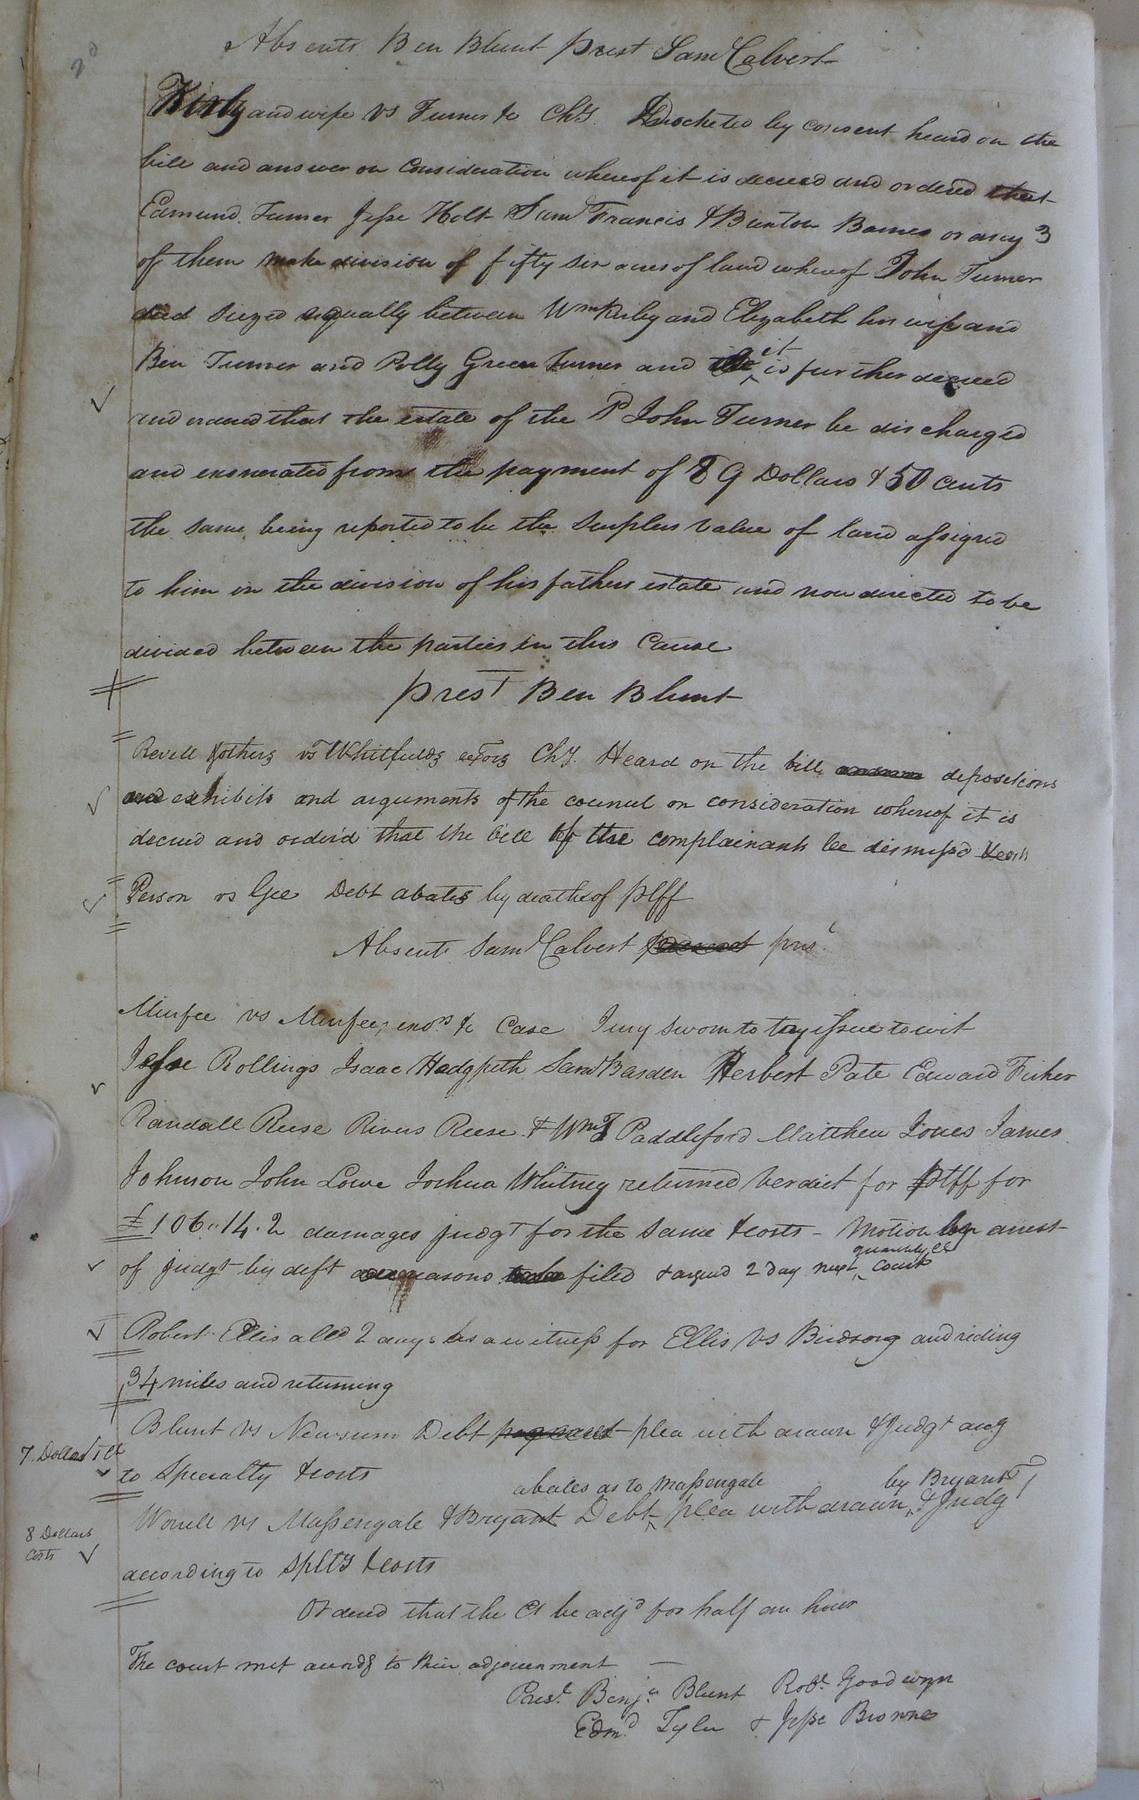 Absent Ben Blunt prest Sam Calvert
2d
Kirby and wife vs Turner &c ChY. Docketed by consent heard on the
bill and answer on consideration whereof it is decreed and ordered that
Edmund Turner Jesse Holt Saml Francis & Burton Barnes or any 3
of them make division of fifty six acres of land whereof John Turner
died siezed equally between Wm Kirby and Elizabeth his wife and
Ben Turner and Polly Green Turner and it is further decreed
and ordered that the estate of the sd John Turner be discharged
and exonerated from the payment of 89 Dollars & 50 cents
the same being reported to be the Surplus value of land assigned
to him in the division of his fathers estate and now directed to be
divided between the parties in this Cause
prest Ben Blunt
Revell & others vs Whitfields exors ChY. Heard on the bill depositions
exhibits and arguments of the councul on consideration whereof it is
decreed and orderd that the bill of the complainants be dismissd & costs
Person vs Gee Debt abates by death of plff
Absent Saml Calvert prest
Minfee vs Minfee, &c Case Jury sworn to try issue to wit
Jesse Rollings Isaac Hadgpeth Saml Barden Herbert Pate Edward Fisher
Randall Reese Rivers Reese & Wm J Paddleford Matthew Jones James
Johnson John Lowe Joshua Whitney returned verdict for Plff for
£106..14.2 damages judgt for the same & costs - Motion in arrest
of judgt by deft reasons filed & argued 2 day next quarterly Court
Robert Ellis alld 2 days as a witness for Ellis vs Birdsong and riding
34 miles and returning
Blunt vs Newsum Debt plea with drawn & Judgt acg
7 Dollars
to Specialty & costs
Worrell vs Massengale & Bryant Debt abates as to Massengale plea with drawn by Bryant & Judgt
8 Dollars
Costs
according to Splty & costs
Ordered that the Ct be adjd for half an hour
The court met accordg to their adjournment
Prest. Benja Blunt Robt. Goodwyn
Edmd. Tyler & Jesse Browne